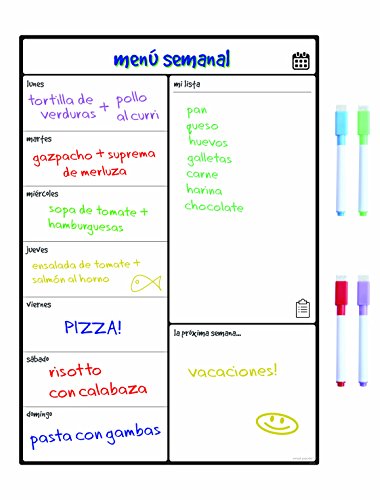 menú semanal
lunes
tortilla de verduras + pollo al curri
martes
gazpacho + suprema
de merluza
miércoles
sopa de tomate +
hamburguesas
jueves
ensalada de tomate +
salmón al horno
viernes
PIZZA!
sábado
risotto
con calabaza
domingo
pasta con gambas
mi lista
pan
queso
huevos
galletas
carne
harina
chocolate
la próxima semana...
vacaciones!